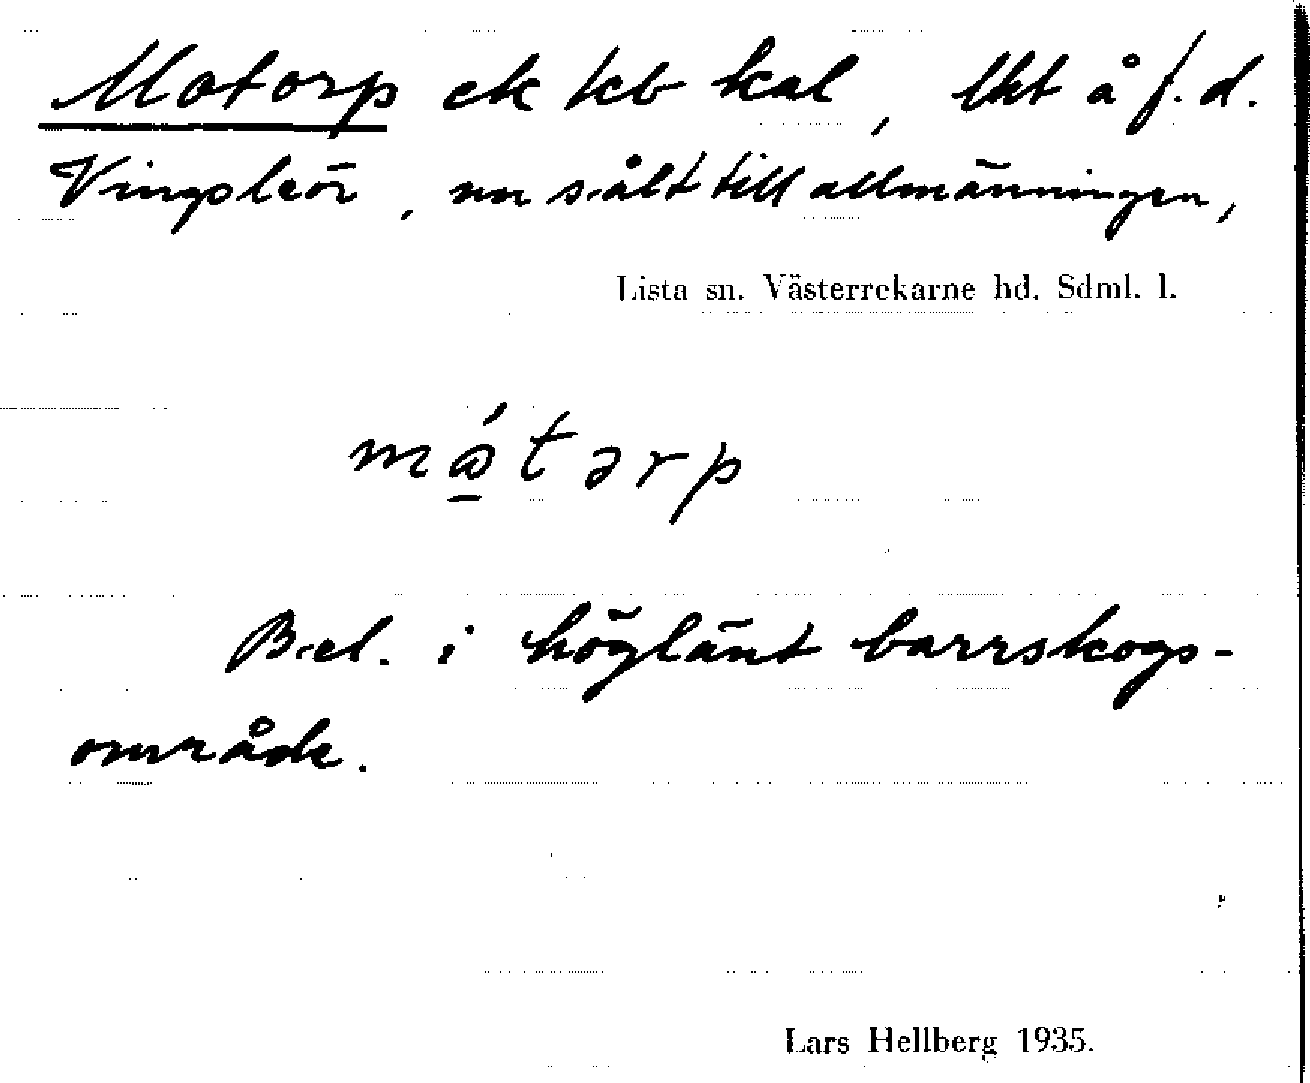 Motorp ek kb kal, lht å f.d.
Vingsleör, nu sålt till allmänningen,
Lista sn. Västerrekarne hd. Sdml. l.
mátərp
Bel. i höglänt barrskogs-
område.
Lars Hellberg 1935.